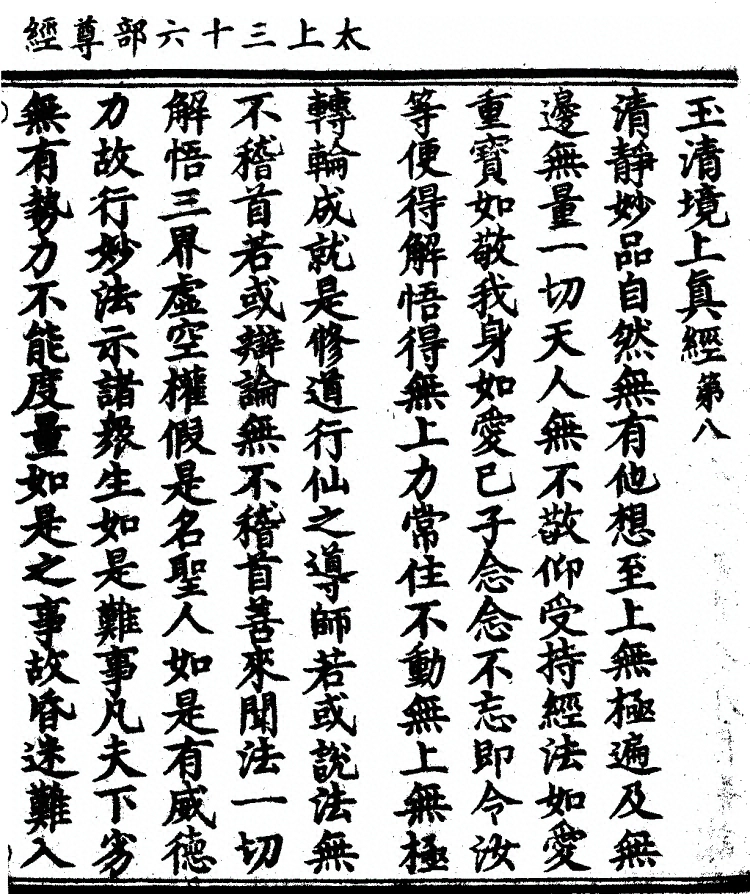 太上三十六部尊經
玉清境上眞經第八
清靜妙品自然無有他想至上無極遍及無
邊無量一切天人無不敬仰受持經法如愛
重寶如敬我身如愛已子念念不忘即令汝
等便得解悟得無上力常住不動無上無極
轉輪成就是修道行仙之導師若或說法無
不稽首若或辯論無不稽首善來聞法一切
解悟三界虛空權假是名聖人如是有威德
力故行妙法示諸眾生如是難事凡夫下劣
無有勢力不能度量如是之事故昏迷難入